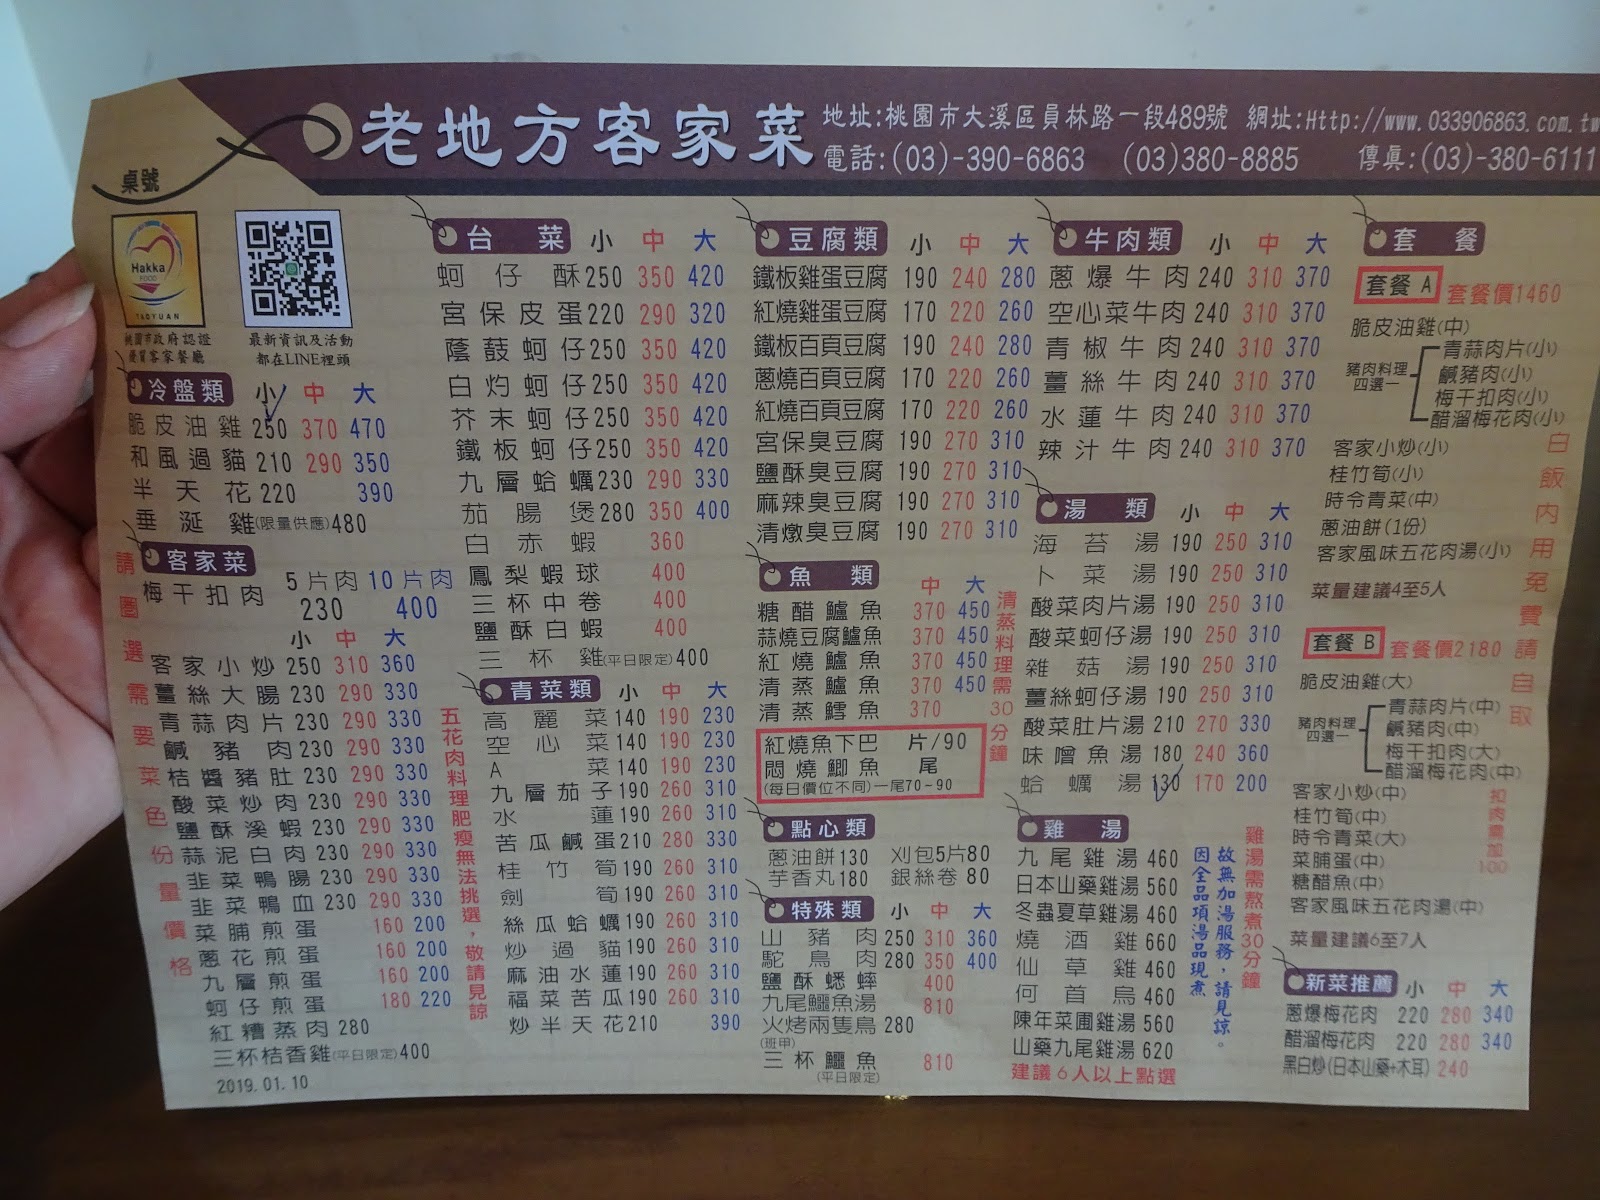 老地方客家菜
地址:桃園市大溪區員林路一段489號 網址:Http://www.033906863.com.tw
電話:(03)-390-6863 (03)380-8885 傳真:(03)-380-6111
桌號
Hakka
FOOD
TAOYUAN
桃園市政府認證
優質客家餐廳
最新資訊及活動
都在LINE裡頭
冷盤類 小 中 大
脆皮油雞 250 370 470
和風過貓 210 290 350
半天花 220 390
垂涎雞(限量供應)480
請圈選需要菜色份量價格
客家菜
梅干扣肉 5片肉 10片肉
230 400
小 中 大
客家小炒 250 310 360
薑絲大腸 230 290 330
青蒜肉片 230 290 330
鹹豬肉 230 290 330
桔醬豬肚 230 290 330
酸菜炒肉 230 290 330
鹽酥溪蝦 230 290 330
蒜泥白肉 230 290 330
韭菜鴨腸 230 290 330
韭菜鴨血 230 290 330
菜脯煎蛋 160 200
蔥花煎蛋 160 200
九層煎蛋 160 200
蚵仔煎蛋 180 220
紅糟蒸肉 280
三杯桔香雞(平日限定)400
2019.01.10
五花肉料理肥瘦無法挑選,敬請見諒
台菜 小 中 大
蚵仔酥 250 350 420
宮保皮蛋 220 290 320
蔭鼓蚵仔 250 350 420
白灼蚵仔 250 350 420
芥末蚵仔 250 350 420
鐵板蚵仔 250 350 420
九層蛤蠣 230 290 330
茄腸煲 280 350 400
白赤蝦 360
鳳梨蝦球 400
三杯中卷 400
鹽酥白蝦 400
三杯雞(平日限定)400
青菜類 小 中 大
高麗菜 140 190 230
空心菜 140 190 230
A菜 140 190 230
九層茄子 190 260 310
水蓮 190 260 310
苦瓜鹹蛋 210 280 330
桂竹筍 190 260 310
劍筍 190 260 310
絲瓜蛤蠣 190 260 310
炒過貓 190 260 310
麻油水蓮 190 260 310
福菜苦瓜 190 260 310
炒半天花 210 390
豆腐類 小 中 大
鐵板雞蛋豆腐 190 240 280
紅燒雞蛋豆腐 170 220 260
鐵板百頁豆腐 190 240 280
蔥燒百頁豆腐 170 220 260
紅燒百頁豆腐 170 220 260
宮保臭豆腐 190 270 310
鹽酥臭豆腐 190 270 310
麻辣臭豆腐 190 270 310
清燉臭豆腐 190 270 310
魚類 中 大
糖醋鱸魚 370 450
蒜燒豆腐鱸魚 370 450
紅燒鱸魚 370 450
清蒸鱸魚 370 450
清蒸鱈魚 370
清蒸料理需30分鐘
紅燒魚下巴 片/90
悶燒鯽魚 尾
(每日價位不同)一尾70~90
點心類
蔥油餅130 刈包5片80
芋香丸180 銀絲卷80
特殊類 小 中 大
山豬肉 250 310 360
駝鳥肉 280 350 400
鹽酥蟋蟀 400
九尾鱷魚湯 810
火烤兩隻鳥 280
(班甲)
三杯鱷魚 810
(平日限定)
牛肉類 小 中 大
蔥爆牛肉 240 310 370
空心菜牛肉 240 310 370
青椒牛肉 240 310 370
薑絲牛肉 240 310 370
水蓮牛肉 240 310 370
辣汁牛肉 240 310 370
湯類 小 中 大
海苔湯 190 250 310
卜菜湯 190 250 310
酸菜肉片湯 190 250 310
酸菜蚵仔湯 190 250 310
雜菇湯 190 250 310
薑絲蚵仔湯 190 250 310
酸菜肚片湯 210 270 330
味噌魚湯 180 240 360
蛤蠣湯 130 170 200
雞湯
九尾雞湯 460
日本山藥雞湯 560
冬蟲夏草雞湯 460
燒酒雞 660
仙草雞 460
何首烏 460
陳年菜圃雞湯 560
山藥九尾雞湯 620
建議6人以上點選
雞湯需熬煮30分鐘
因全品項湯品現煮
故無加湯服務,請見諒。
套餐
套餐 A 套餐價1460
脆皮油雞(中)
豬肉料理
四選一
青蒜肉片(小)
鹹豬肉(小)
梅干扣肉(小)
醋溜梅花肉(小)
客家小炒(小)
桂竹筍(小)
時令青菜(中)
蔥油餅(1份)
客家風味五花肉湯(小)
菜量建議4至5人
白飯內用免費請自取
套餐 B 套餐價2180
脆皮油雞(大)
豬肉料理
四選一
青蒜肉片(中)
鹹豬肉(中)
梅干扣肉(大)
醋溜梅花肉(中)
客家小炒(中)
桂竹筍(中)
時令青菜(大)
菜脯蛋(中)
糖醋魚(中)
客家風味五花肉湯(中)
扣肉需加100
菜量建議6至7人
新菜推薦 小 中 大
蔥爆梅花肉 220 280 340
醋溜梅花肉 220 280 340
黑白炒(日本山藥+木耳) 240